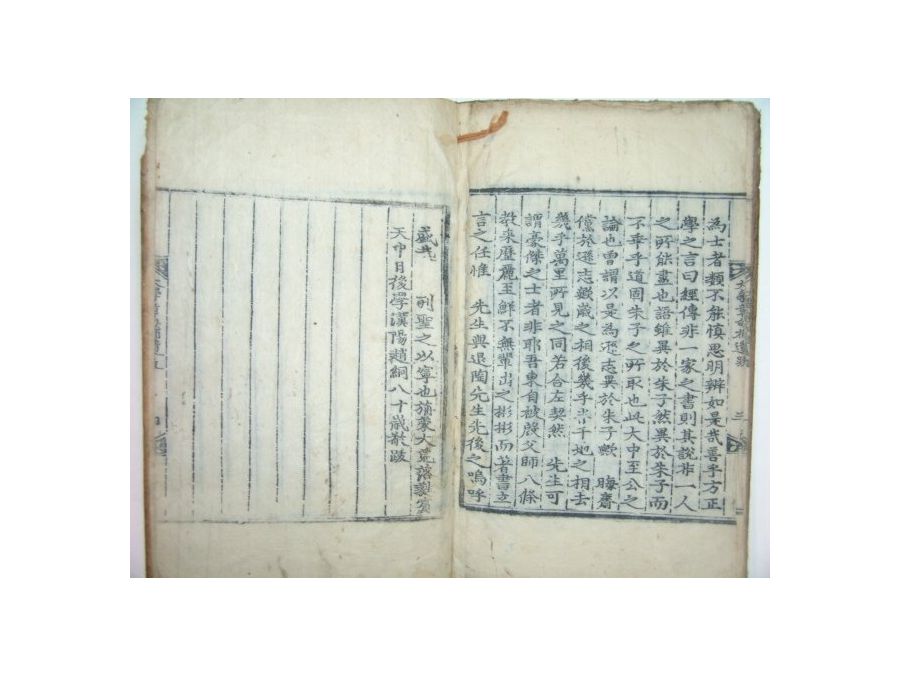 為士者類不能慎思明辨如是哉善乎方正
學之言曰經傳非一家之書則其說非一人
之所能盡也語雖異於朱子然異於朱子而
不乖乎道固朱子之所取也此大中至公之
論也曾謂以是為遜志異於朱子歟 晦齋
遜志歲之相後幾乎千地之相去
幾乎萬里所見之同若合左契然 先生可
謂豪傑之士者非耶吾東自被殷父師八條
教来歷麗王鮮不無輩出之彬彬而著書立
言之任惟 先生與退陶先生先後之嗚呼
盛哉 列聖之以寧也旃蒙大荒落蕤賓
天中日後學漢陽趙絅八十歲敬跋